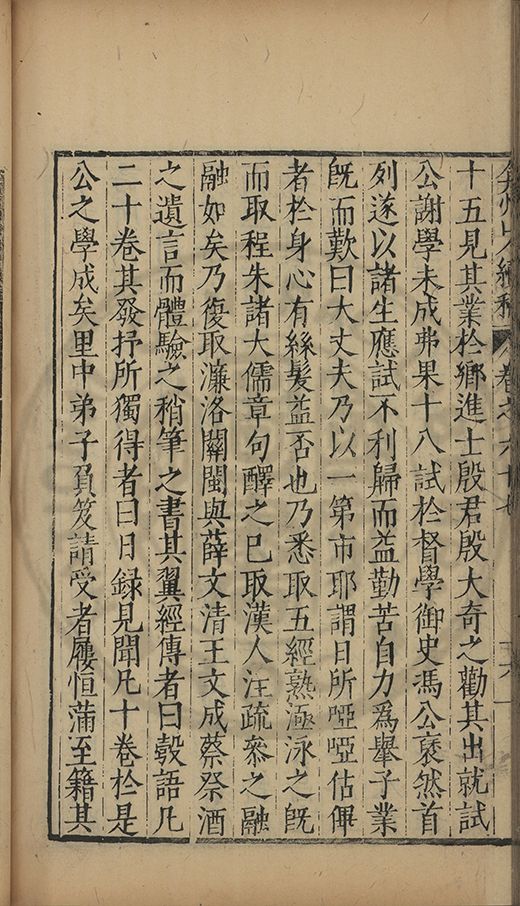 弇州山人續稿 卷之六十七 十六
十五見其業於鄉進士殷君殷大奇之勸其出就試
公謝學未成弗果十八試於督學御史馮公裒然首
列遂以諸生應試不利歸而益勤苦自力爲舉子業
旣而歎曰大丈夫乃以一第市耶謂日所啞啞估俾
者於身心有絲髮益否也乃悉取五經熟溫泳之旣
而取程朱諸大儒章句醳之已取漢人注疏叅之融
融如矣乃復取濂洛關閩與薛文清王文成蔡祭酒
之遺言而體驗之稍筆之書其翼經傳者曰彀語凡
二十卷其發抒所獨得者曰日録見聞凡十卷於是
公之學成矣里中弟子負笈請受者屨恒滿至籍其